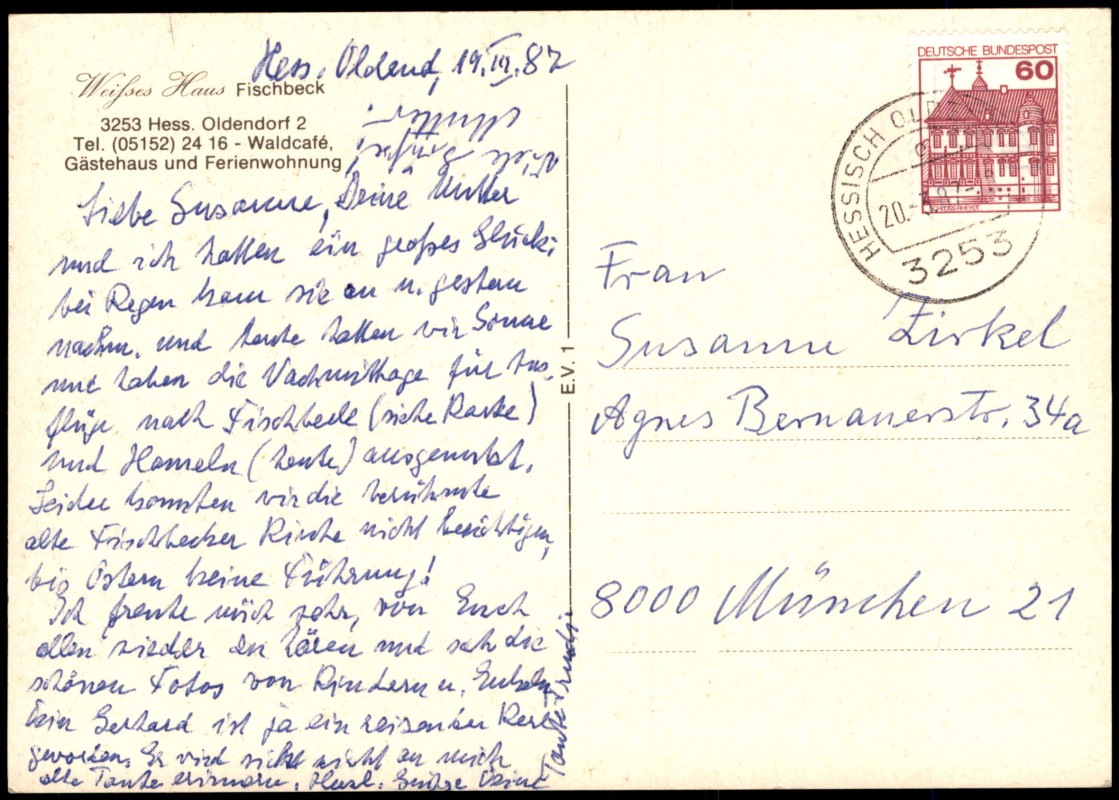 Hess. Oldend, 19. III. 87
Weißes Haus Fischbeck
3253 Hess. Oldendorf 2
Tel. (05152) 24 16 - Waldcafé,
Gästehaus und Ferienwohnung
Liebe Susanne, Deine Mutter
und ich hatten ein großes Glück:
bei Regen kam sie an u. gestern
nachm. und heute hatten wir Sonne
und haben die Nachmittage für Aus-
flüge nach Fischbeck (siehe Karte)
und Hameln (heute) ausgenutzt.
Leider konnten wir die berühmte
alte Fischbecker Kirche nicht besichtigen,
bis Ostern keine Führung!
Ich freute mich sehr, von Euch
allen wieder zu hören und sah die
schönen Fotos von Kindern u. Enkeln
Dein Gerhard ist ja ein reizender Kerl
geworden. Er wird sich nicht an mich
alte Tante erinnern. Herzl. Grüße Deine
Tante Trudi
E.V. 1
DEUTSCHE BUNDESPOST
60
HESSISCH OLDENDORF
20.-3.87
3253
Frau
Susanne Zirkel
Agnes Bernauerstr. 34a
8000 München 21